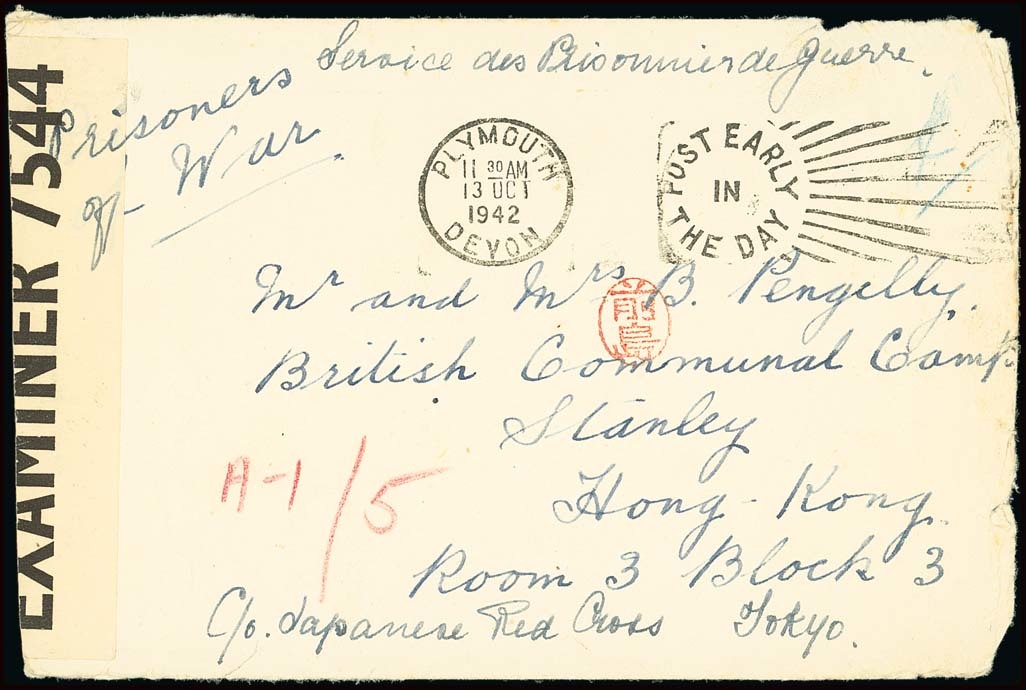 Service des Prisonnier de guerre.
Prisoners
of War.
EXAMINER 7544
PLYMOUTH
11 30 AM
13 OCT
1942
DEVON
POST EARLY
IN
THE DAY
Mr and Mrs B. Pengelly.
British Communal Camp
Stanley
Hong-Kong
A-1/5
Room 3 Block 3
C/o. Japanese Red Cross Tokyo.